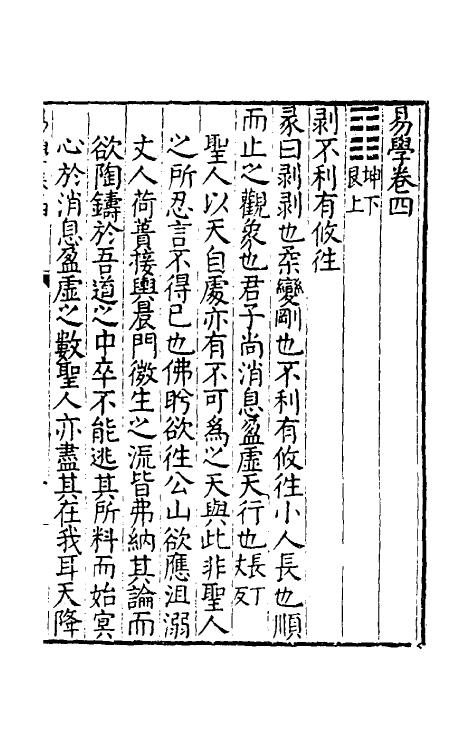 易學卷四
䷖坤下艮上
剥不利有攸往
彖曰剥剥也柔變剛也不利有攸往小人長也順
而止之觀象也君子尚消息盈虚天行也長丁丈反
聖人以天自處亦有不可為之天與此非聖人
之所忍言不得已也佛肸欲往公山欲應沮溺
丈人荷蕢接輿晨門微生之流皆弗納其論而
欲陶鑄於吾道之中卒不能逃其所料而始㝠
心於消息盈虚之數聖人亦盡其在我耳天降